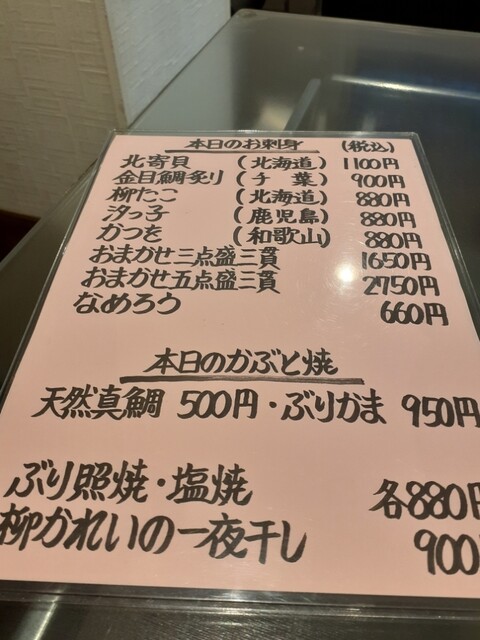 本日のお刺身 (税込)
北寄貝 (北海道) 1100円
金目鯛炙り (千葉) 900円
柳たこ (北海道) 880円
汐っ子 (鹿児島) 880円
かつを (和歌山) 880円
おまかせ三点盛三貫 1650円
おまかせ五点盛三貫 2750円
なめろう 660円
本日のかぶと焼
天然真鯛 500円・ぶりかま 950円
ぶり照焼・塩焼 各880円
柳かれいの一夜干し 900